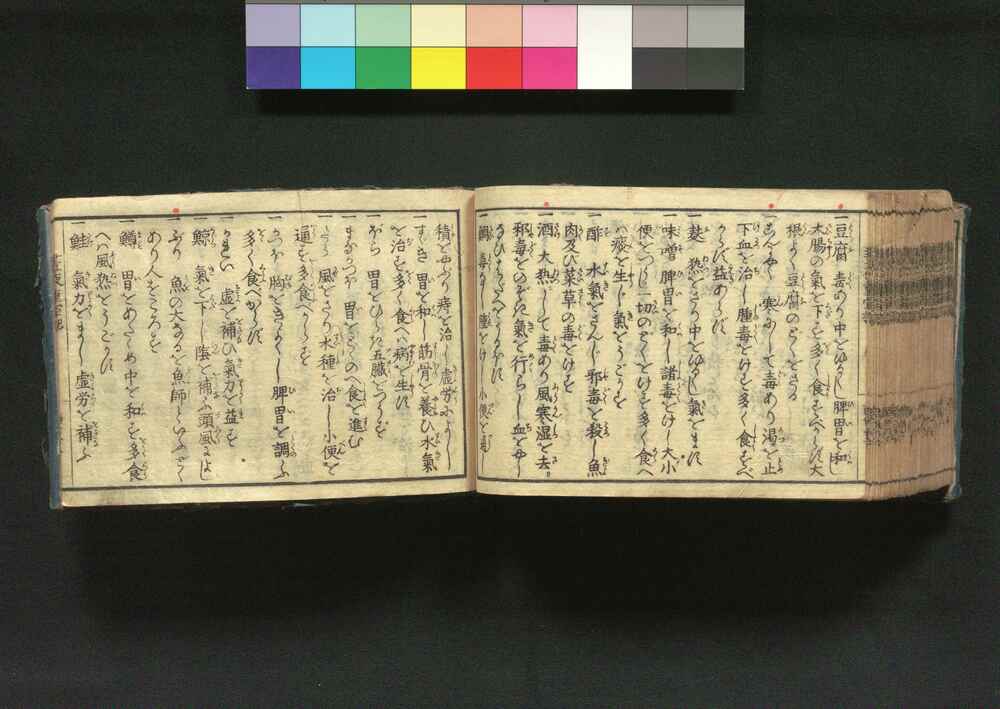 一豆腐 毒あり中をゆるくし脾胃を和し
大腸の氣を下す多く食すべからず大
根よく豆腐のどくをさる
一こんにやく 寒にして毒あり渇を止
下血を治し腫毒をけす多く食すべ
からず益あらず
一麸 熱をさり中をゆるくし氣をます
一味噌 脾胃を和し諸毒をけし大小
便をつうじ一切のどくをけす多く食へ
ハ痰を生し氣をうごかす
一酢 水氣をさんじ邪毒を殺し魚
肉及ひ菜草の毒をけす
一酒 大熱にして毒あり風寒湿を去。
邪毒をのぞき氣を行らし血をやし
一鯛 毒なし 小便を通し
積をやぶり痔を治し虚労によろし
一すゞき 胃を和し筋骨を養ひ水氣
を治す多く食へハ病を生ず
一ぼら 胃をひらき五臓を
胃を 食を進む
風をさり水種を治し小便を
通ず多く食べからず
一かつほ 胸をきよくし脾胃を調ふ
多く食べからず
一かれい 虚を補ひ氣力を益す
一鯨 氣を下し陰を補ふ頭風によし
一ふり 魚の大なるを魚師といふどく
あり人をころす
一鱒 胃をあたため中を和す多食
へハ風熱をうごかす
一鮭 氣力をまし虚労を補ふ